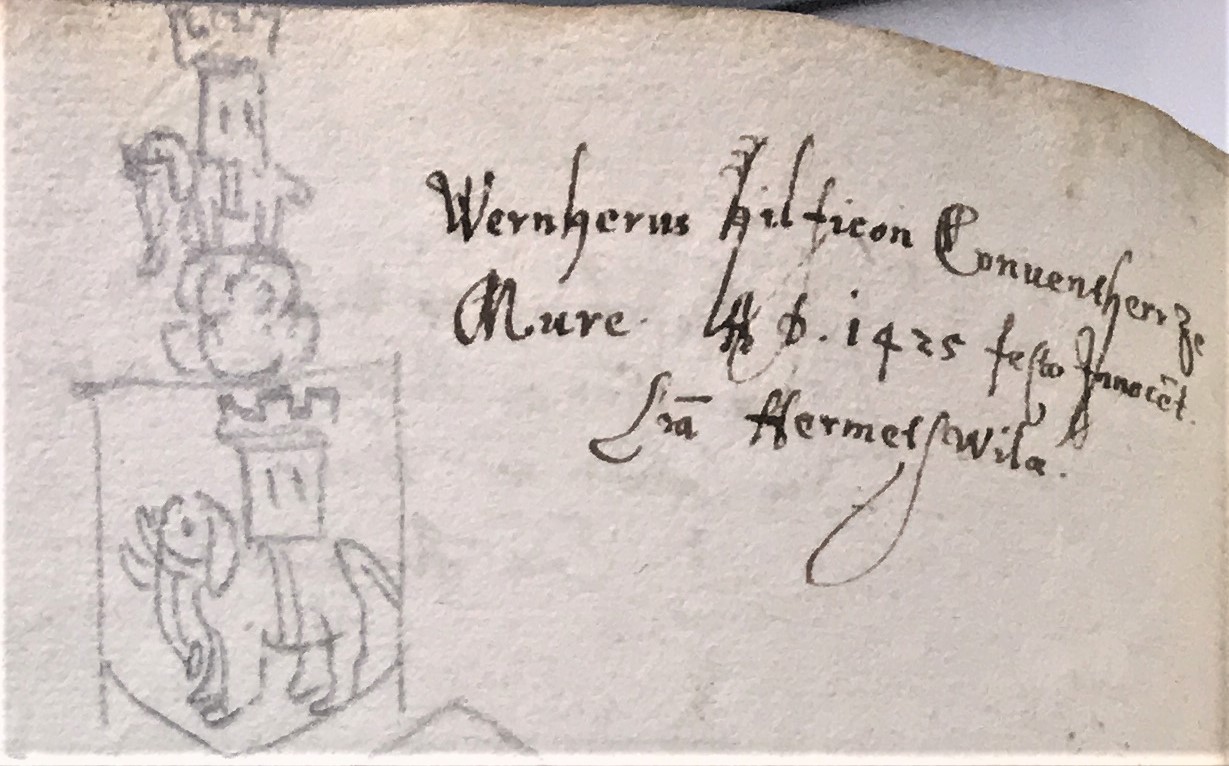 Wernherus Hilficon Conventherr Ze
Mure. A D. 1425 festo Innocēt.
Lrā Hermetſwila.